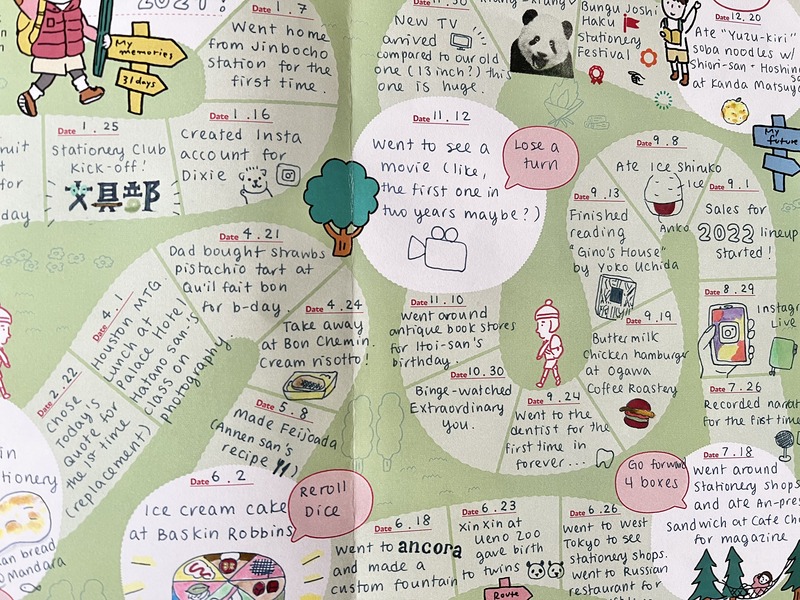 2021!
My
memories
31 days
Date 1.7
Went home
from Jinbocho
station for the
first time.
Date 1.16
created Insta
account for
Dixie
Date 1.25
Stationery Club
Kick-off!
文具部
for
day
Date 2.22
Chose
Today's
Quote for
the 1st time
(replacement)
Date 4.1
Houston MTG.
Lunch at
Palace Hotel
Hatano san's
class on
photography
Date 4.21
Dad bought strawbs
pistachio tart at
Qu'il fait bon
for b-day.
Date 4.24
Take away
at Bon Chemin.
Cream risotto!
Date 5.8
Made Feijoada
(Annen san's
recipe
Date 6.2
Ice cream cake
at Baskin Robbins
Reroll
Dice
Date 6.18
went to ancora
and made a
custom fountain
Date 6.23
Xin Xin at
Ueno Zoo
gave birth
to twins
Route
Date 6.26
went to West
Tokyo to see
stationery shops.
went to Russian
restaurant for
Go forward
4 boxes
Date 7.18
went around
stationery shops
and ate An-pres
sandwich at Cafe
for magazine
Date 7.26
Recorded
for the first time
Date 8.29
Instagram
Live
Date 9.1
Sales for
2022 lineup
started!
Date 9.8
Ate Ice Shiruko
Ice
Anko
Date 9.13
Finished
reading
"Gino's House"
by Yoko Uchida
Date 9.19
Buttermilk
chicken hamburger
at Ogawa
Coffee Roastery
Date 9.24
Went to the
dentist for the
first time in
forever...
Date 10.30
Binge-watched
Extraordinary
you.
Date 11.10
went around
antique book stores
for Itoi-san's
birthday.
Date 11.12
Went to see a
movie (like,
the first one in
two years maybe?)
Lose a
turn
Date 11.30
New TV
arrived
compared to our old
one (13 inch?) this
one is huge.
Bungu Joshi
Haku
stationery
Festival
Date 12.20
Ate "Yuzu-kiri"
soba noodles w/
Shiori-san + Hoshino
at Kanda Matsuya
My
future